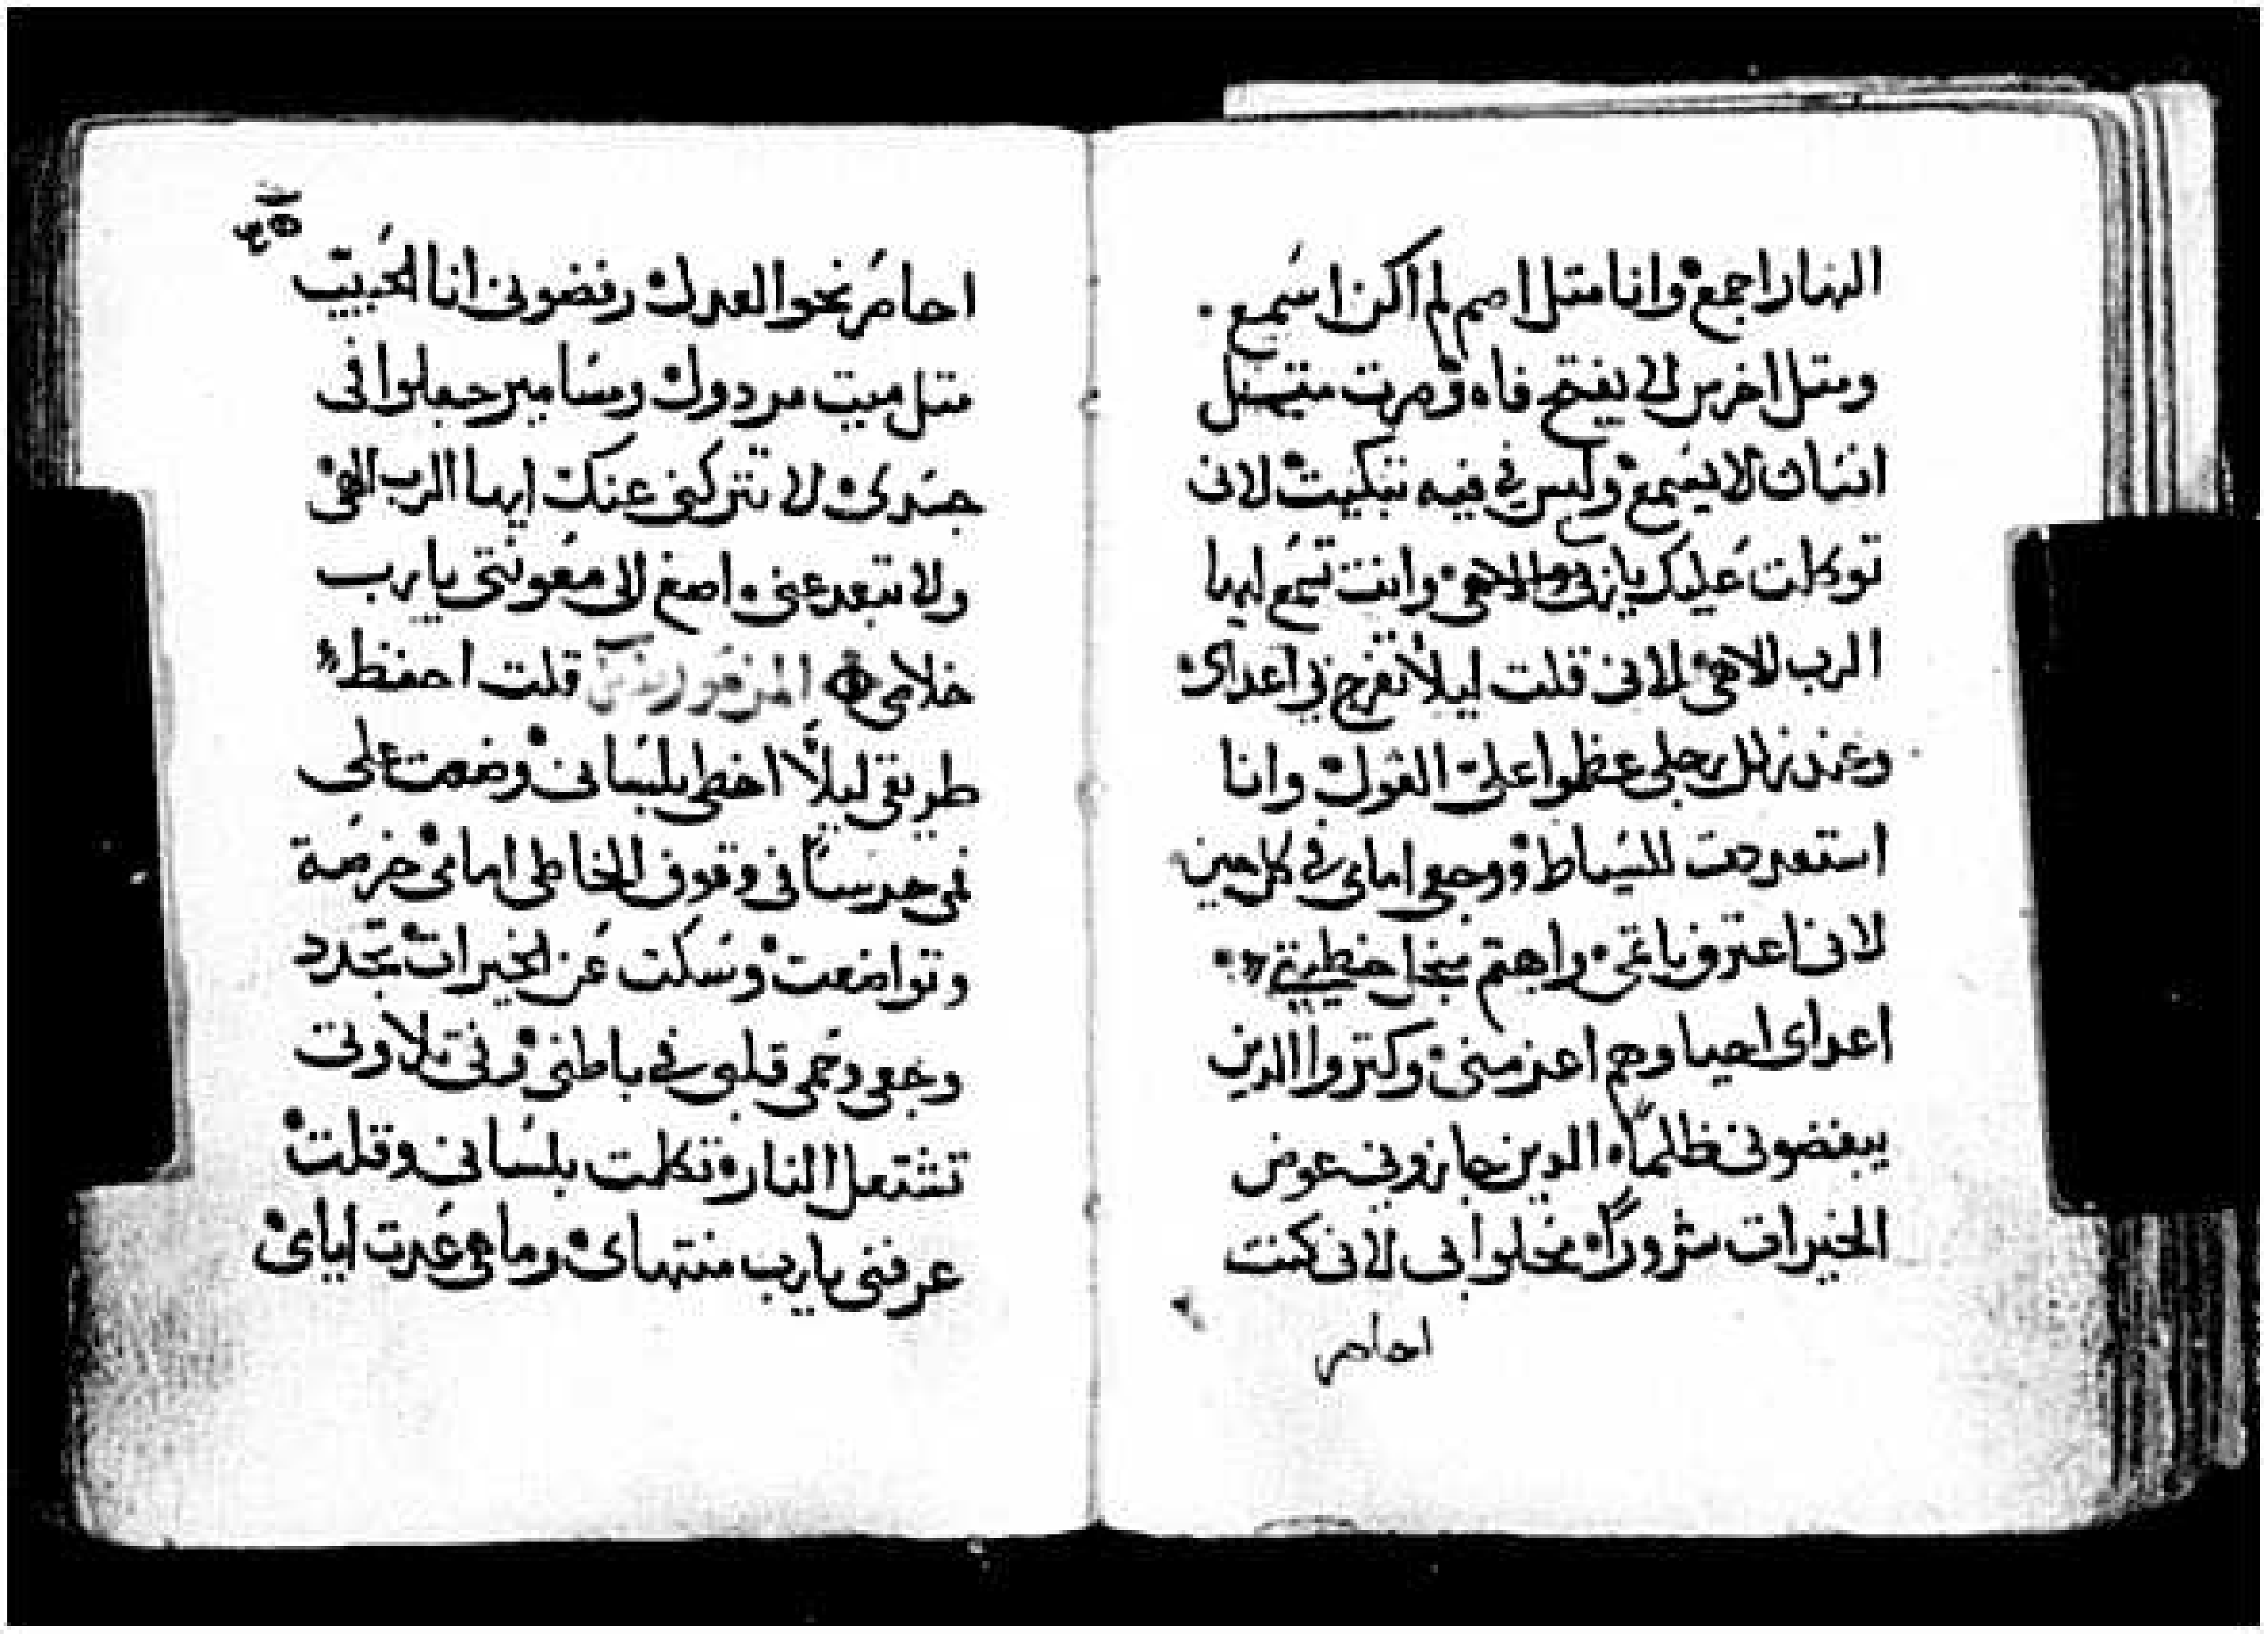 النهار اجمع وانا متل اصم لم اكن اسمع.
ومتل اخرس لا يفتح فاه وصرت متيتل
انسان لا يسمع وليس في فيه تبكيت لانى
توكلت عليك يا وانت تسمع ايها
الرب الاهى لانى قلت ليلا تفرح بي اعداى
وعند زلل رجلى عظموا على القول وانا
استعديت للسياط ووجعى امامى في كل حين
لانى اعترف باتمى واهتم من اجل خطيتى
اعداى احيا وهم اعز منى وكتروا الدين
يبغضونى ظلمًا الدين جازونى عوض
الخيرات شرورًا محلوا بى لانى كنت
احاضر
احاضر نحو العدل رفضونى انا الحبيب
متل ميت مردول ومسامير جعلوا فى
جسدى لا تتركنى عنك ايها الرب الاهى
ولا تبعد عنى واصغ الى معونتى يا رب
خلاصى المزمور قلت احفظ
طريقى ليلًا اخطى بلسانى وضعت على
فمى حرسًا فى وقوف الخاطى امامى خرصة
وتواضعت وسكت عن الخيرات تجدد
وجعى وحمى قلبى في باطنى وفى تلاوتى
تشتعل النار تكلمت بلسانى وقلت
عرفنى يا رب منتهاى وما هى عدت ايامى